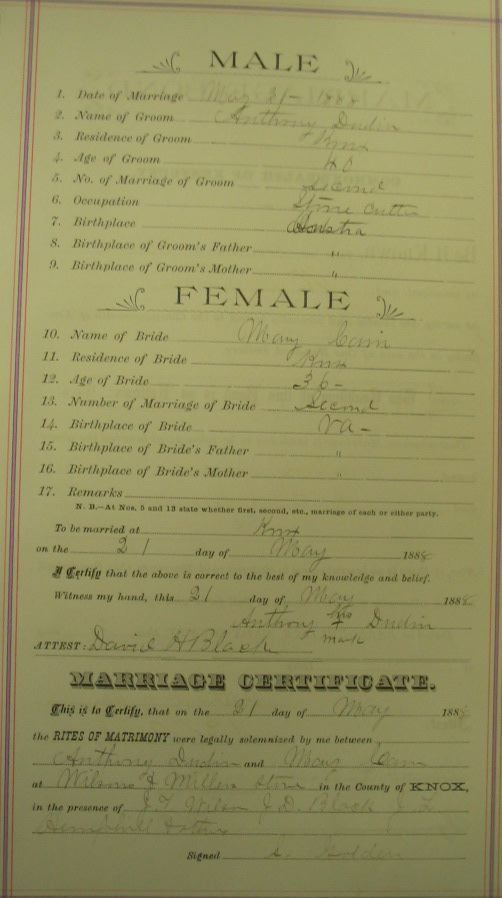 MALE
1. Date of Marriage May 21 - 1888
2. Name of Groom Anthony Dudin
3. Residence of Groom Knx
4. Age of Groom 40
5. No. of Marriage of Groom Second
6. Occupation Stone Cutter
7. Birthplace
8. Birthplace of Groom's Father "
9. Birthplace of Groom's Mother "
FEMALE
10. Name of Bride Mary Cain
11. Residence of Bride Knx
12. Age of Bride 36 -
13. Number of Marriage of Bride Second
14. Birthplace of Bride VA -
15. Birthplace of Bride's Father "
16. Birthplace of Bride's Mother "
17. Remarks
N. B.—At Nos. 5 and 13 state whether first, second, etc., marriage of each or either party.
To be married at Knx
on the 21 day of May 1888
I Certify that the above is correct to the best of my knowledge and belief.
Witness my hand, this 21 day of May 1888
Anthony his x Dudin
mark
ATTEST: David H Black
MARRIAGE CERTIFICATE.
This is to Certify, that on the 21 day of May 1888
the RITES OF MATRIMONY were legally solemnized by me between
Anthony Dudin and Mary Cain
at Wilson & Millers Store in the County of KNOX,
in the presence of J T Wilson J D. Black J
Signed Golden